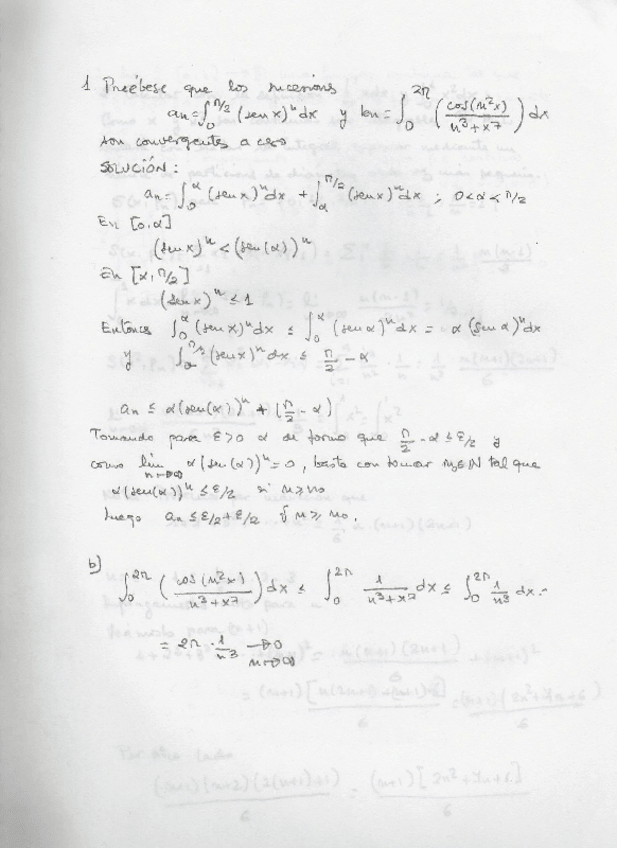 1 Pruébese que las sucesiones
an = ∫₀^{π/2} (sen x)ⁿ dx y bn = ∫₀^{2π} (cos(n²x)/(n³+x⁷)) dx
son convergentes a cero
SOLUCIÓN:
an = ∫₀^α (sen x)ⁿ dx + ∫_α^{π/2} (sen x)ⁿ dx ; 0<α<π/2
En [0,α]
(sen x)ⁿ < (sen(α))ⁿ
En [α, π/2]
(sen x)ⁿ ≤ 1
Entonces ∫₀^α (sen x)ⁿ dx ≤ ∫₀^α (sen α)ⁿ dx = α (sen α)ⁿ dx
y ∫_α^{π/2} (sen x)ⁿ dx ≤ π/2 - α
an ≤ α(sen(α))ⁿ + (π/2 - α)
Tomando para ε>0 α de forma que π/2 - α ≤ ε/2 y
como lim_{n→∞} α(sen(α))ⁿ = 0, basta con tomar n₀∈N tal que
α(sen(α))ⁿ ≤ ε/2 si n ≥ n₀
luego an ≤ ε/2 + ε/2 si n ≥ n₀.
b)
∫₀^{2π} (cos(n²x)/(n³+x⁷)) dx ≤ ∫₀^{2π} 1/(n³+x⁷) dx ≤ ∫₀^{2π} 1/n³ dx =
= 2π · 1/n³ →0 n→∞